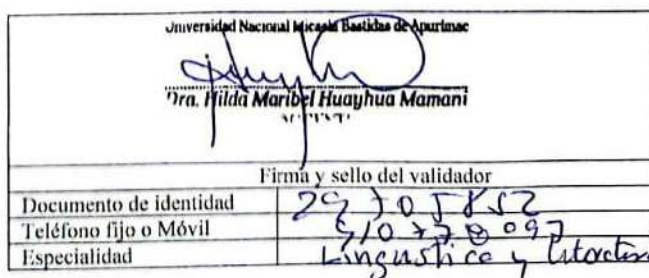 Universidad Nacional Micaela Bastidas de Apurímac
Dra. Hilda Maribel Huayhua Mamani
Firma y sello del validador
Documento de identidad 29705852
Teléfono fijo o Móvil
Especialidad Lingüística y